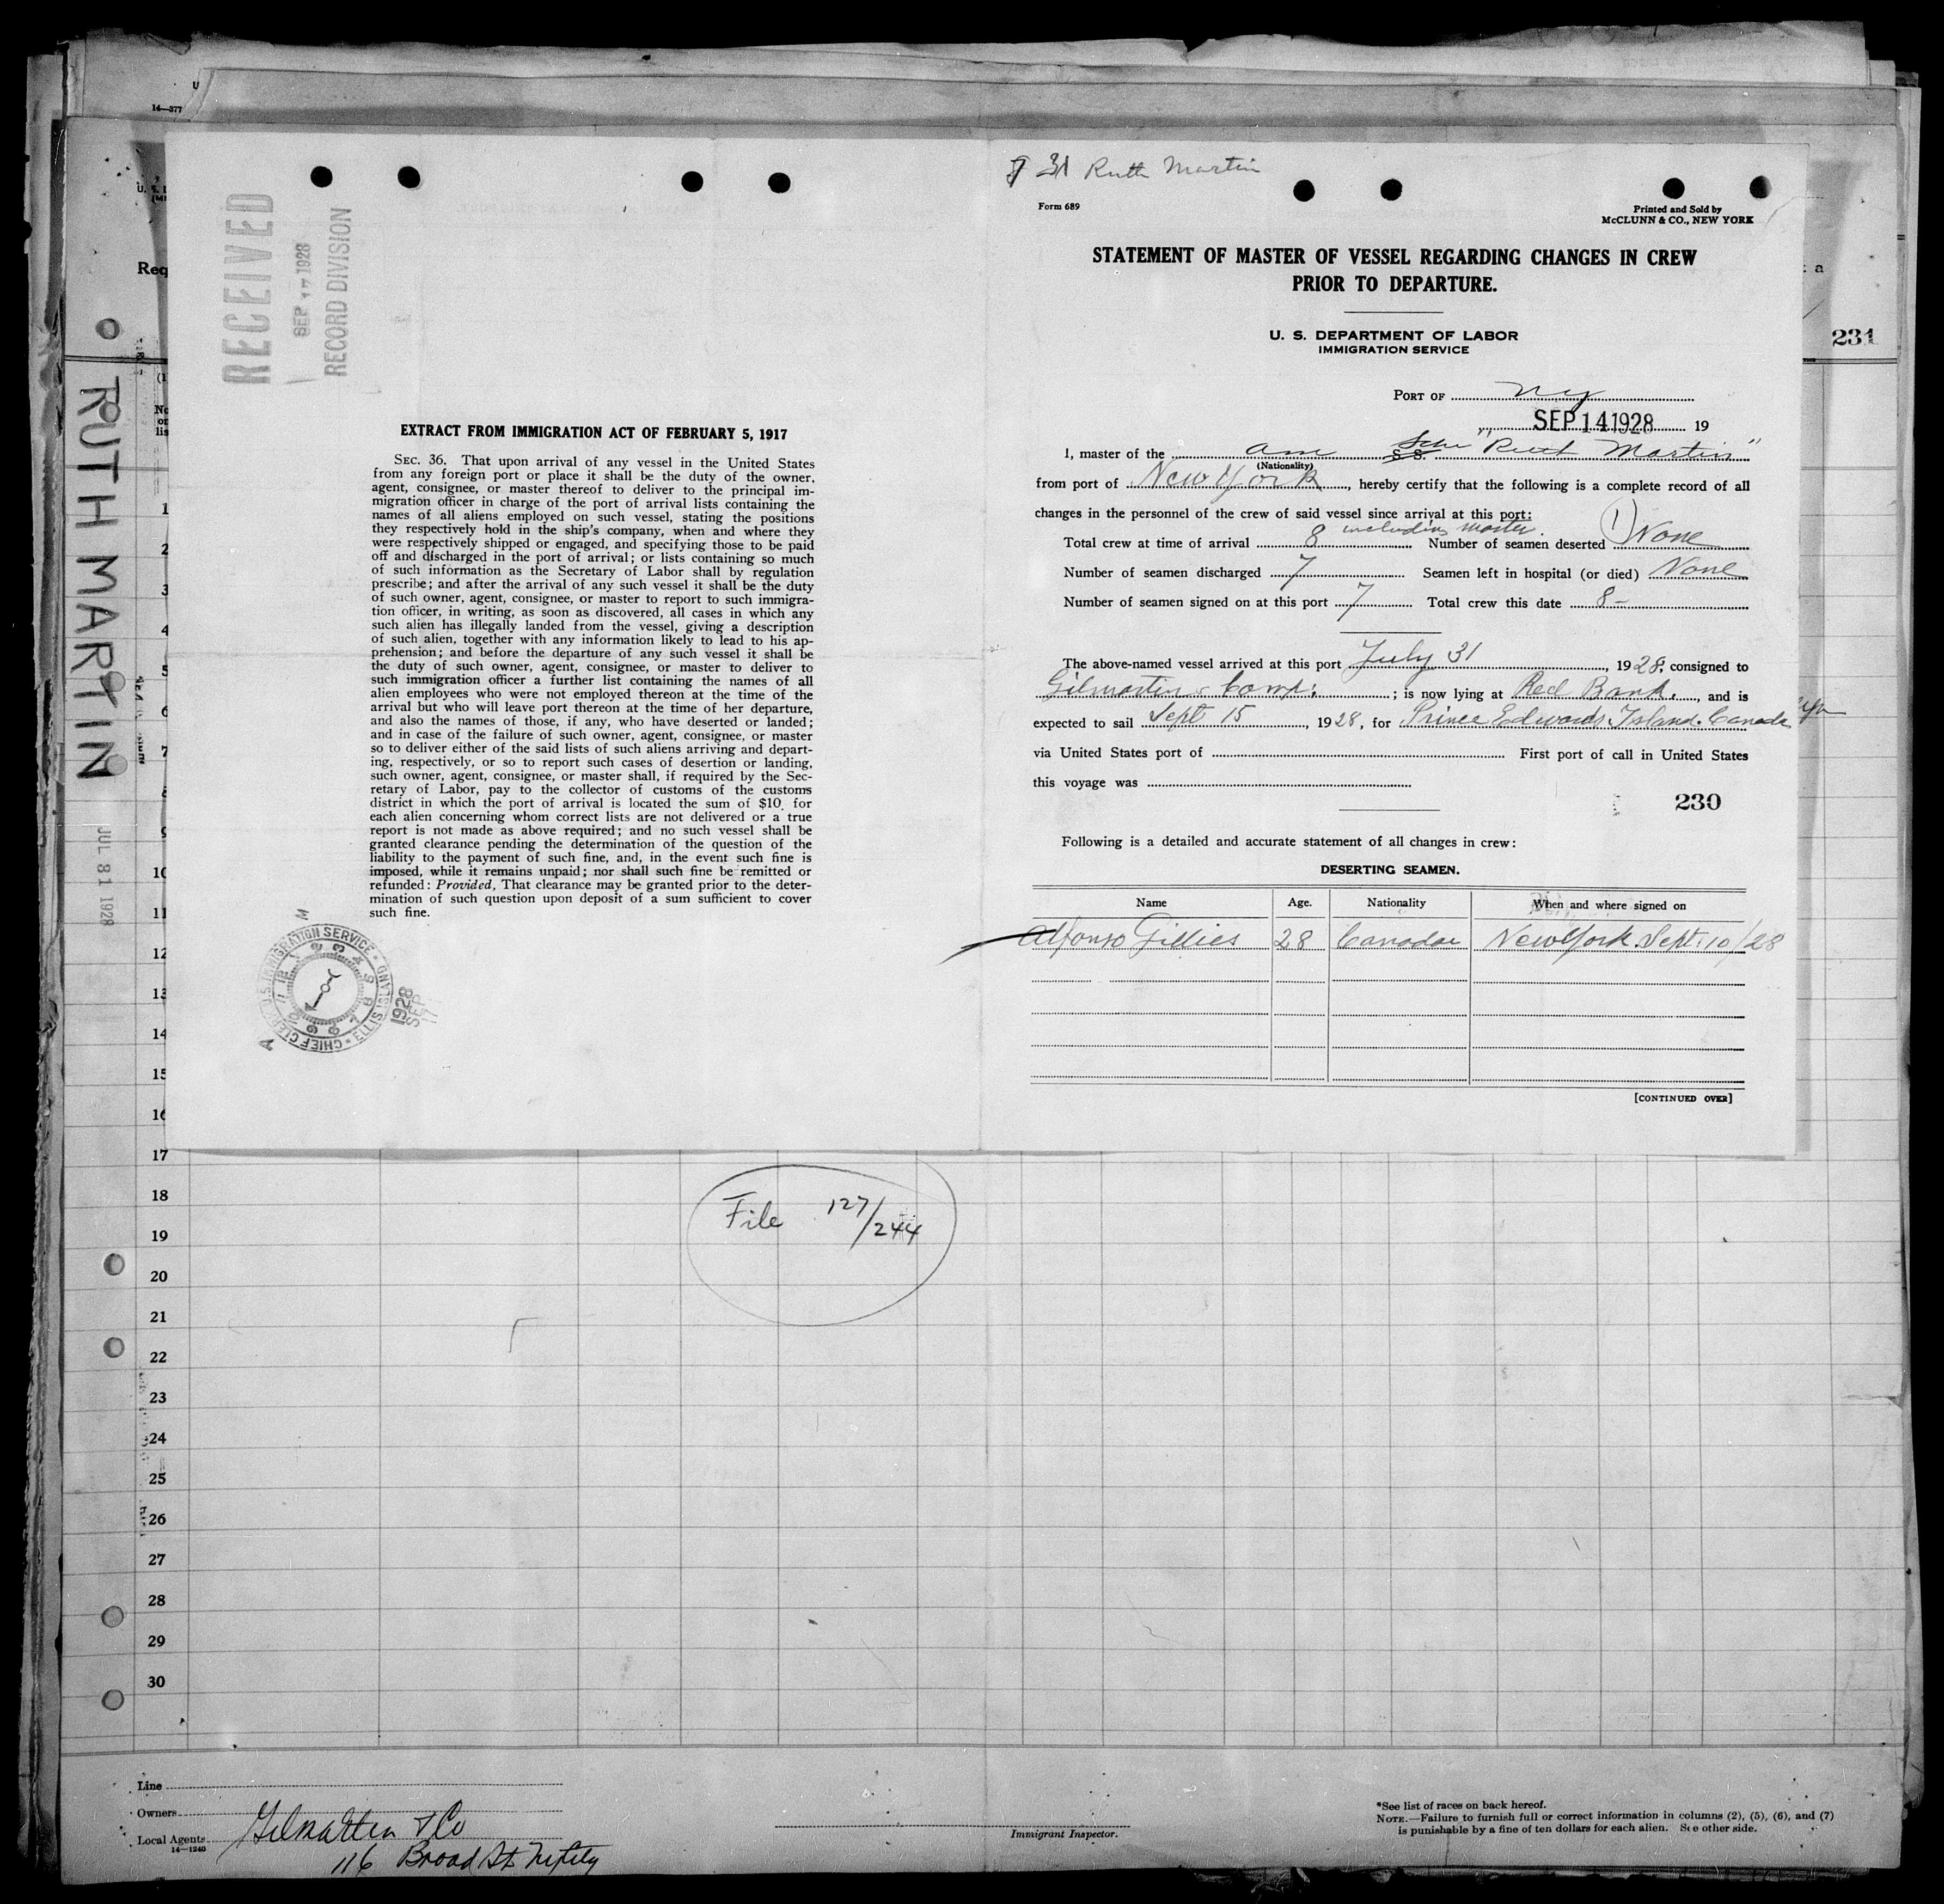 U
14—377
U. S.
Req
RECEIVED
SEP 17 1928
RECORD DIVISION
RUTH MARTIN
JUL 31 1928
EXTRACT FROM IMMIGRATION ACT OF FEBRUARY 5, 1917
SEC. 36. That upon arrival of any vessel in the United States
from any foreign port or place it shall be the duty of the owner,
agent, consignee, or master thereof to deliver to the principal im-
migration officer in charge of the port of arrival lists containing the
names of all aliens employed on such vessel, stating the positions
they respectively hold in the ship's company, when and where they
were respectively shipped or engaged, and specifying those to be paid
off and discharged in the port of arrival; or lists containing so much
of such information as the Secretary of Labor shall by regulation
prescribe; and after the arrival of any such vessel it shall be the duty
of such owner, agent, consignee, or master to report to such immigra-
tion officer, in writing, as soon as discovered, all cases in which any
such alien has illegally landed from the vessel, giving a description
of such alien, together with any information likely to lead to his ap-
prehension; and before the departure of any such vessel it shall be
the duty of such owner, agent, consignee, or master to deliver to
such immigration officer a further list containing the names of all
alien employees who were not employed thereon at the time of the
arrival but who will leave port thereon at the time of her departure,
and also the names of those, if any, who have deserted or landed;
and in case of the failure of such owner, agent, consignee, or master
so to deliver either of the said lists of such aliens arriving and depart-
ing, respectively, or so to report such cases of desertion or landing,
such owner, agent, consignee, or master shall, if required by the Sec-
retary of Labor, pay to the collector of customs of the customs
district in which the port of arrival is located the sum of $10 for
each alien concerning whom correct lists are not delivered or a true
report is not made as above required; and no such vessel shall be
granted clearance pending the determination of the question of the
liability to the payment of such fine, and, in the event such fine is
imposed, while it remains unpaid; nor shall such fine be remitted or
refunded: Provided, That clearance may be granted prior to the deter-
mination of such question upon deposit of a sum sufficient to cover
such fine.
CHIEF CLERK U.S. IMMIGRATION SERVICE ELLIS ISLAND
1928 SEP 17
J 31 Ruth Martin
Form 689
Printed and Sold by
McCLUNN & CO., NEW YORK
STATEMENT OF MASTER OF VESSEL REGARDING CHANGES IN CREW
PRIOR TO DEPARTURE.
U. S. DEPARTMENT OF LABOR
IMMIGRATION SERVICE
231
PORT OF NY
SEP 14 1928 19
I, master of the Am S. S. Schr "Ruth Martin"
(Nationality)
from port of New York, hereby certify that the following is a complete record of all
changes in the personnel of the crew of said vessel since arrival at this port:
Total crew at time of arrival 8 including master. Number of seamen deserted (1) None
Number of seamen discharged 7 Seamen left in hospital (or died) None
Number of seamen signed on at this port 7 Total crew this date 8-
The above-named vessel arrived at this port July 31, 1928, consigned to
Gilmartin & Comp.; is now lying at Red Bank, and is
expected to sail Sept 15, 1928, for Prince Edwards Island. Canada
via United States port of First port of call in United States
this voyage was
230
Following is a detailed and accurate statement of all changes in crew:
DESERTING SEAMEN.
Name Age. Nationality When and where signed on
Alfonso Gillies 28 Canadae New York. Sept. 10/28
[CONTINUED OVER]
1
2
3
4
5
6
7
8
9
10
11
12
13
14
15
16
17
18
19
20
21
22
23
24
25
26
27
28
29
30
File 127/244
Line
Owners
Local Agents Gilmartin & Co
14—1240
116 Broad St NY City
Immigrant Inspector.
*See list of races on back hereof.
NOTE.—Failure to furnish full or correct information in columns (2), (5), (6), and (7)
is punishable by a fine of ten dollars for each alien. See other side.